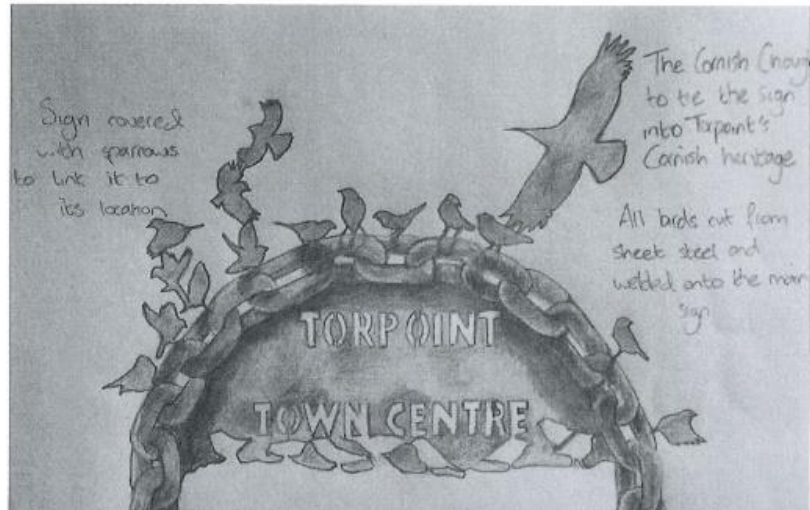 Sign covered
with sparrows
to link it to
its location
The Cornish Choug
to tie the sign
into Torpoint's
Cornish heritage
All birds cut from
sheet steel and
welded onto the main
sign
TORPOINT
TOWN CENTRE